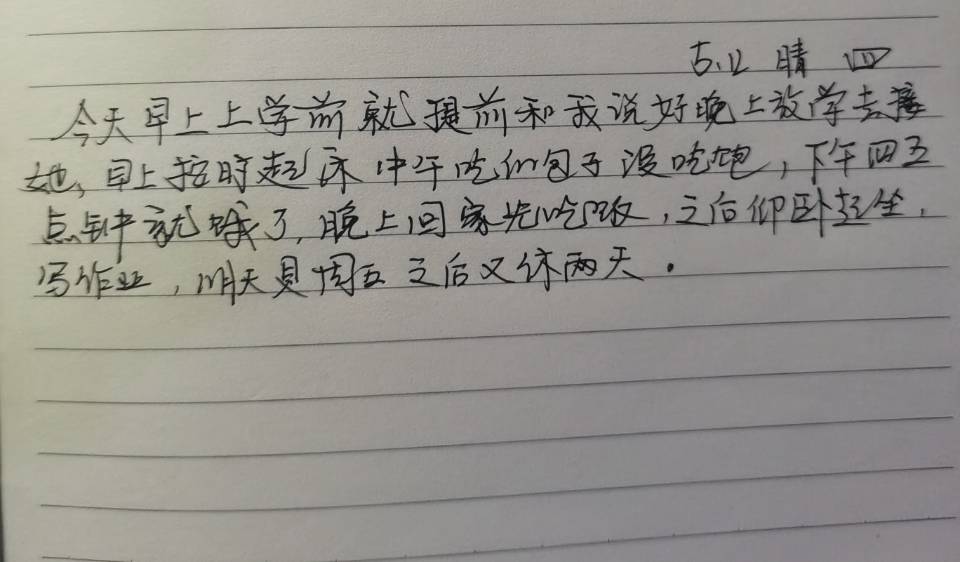 5.12 晴 四
今天早上上学前就提前和我说好晚上放学去接
她，早上按时起床中午吃的包子没吃饱，下午四五
点钟就饿了，晚上回家先吃饭，之后仰卧起坐，
写作业，明天是周五之后又休两天．